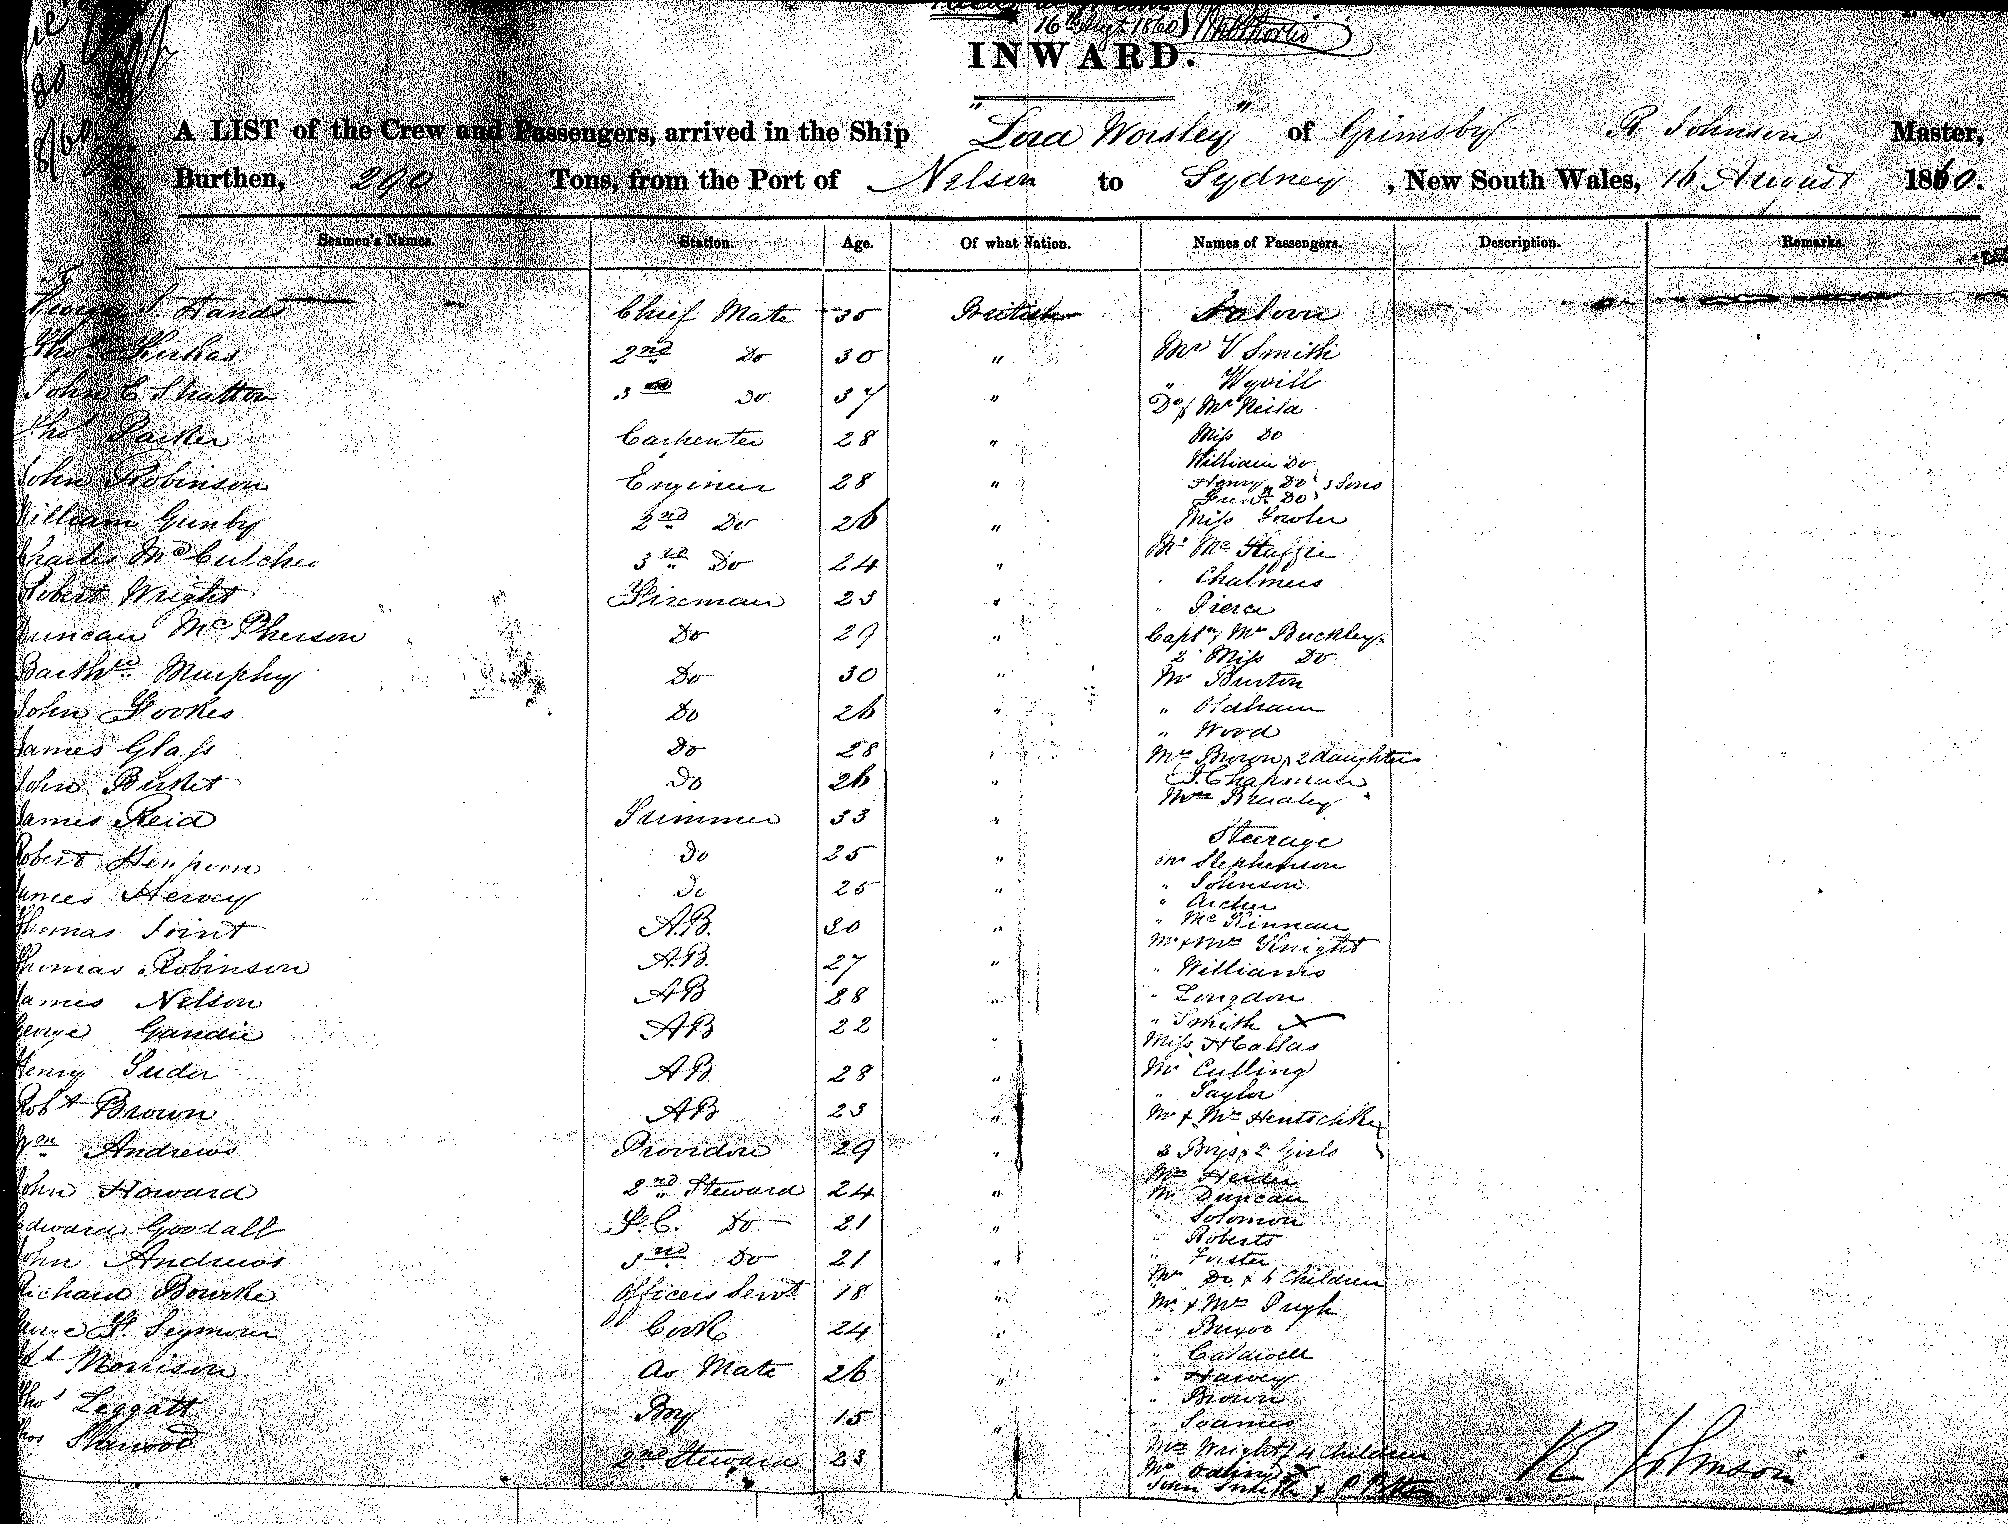 16th Augt 1860
INWARD.
A LIST of the Crew and Passengers, arrived in the Ship "Lord Worsley" of Grimsby R Johnson Master,
Burthen, 290 Tons, from the Port of Nelson to Sydney, New South Wales, 16 August 1860.
Seamen's Names. Station. Age. Of what Nation. Names of Passengers. Description. Remarks.
George Hands Chief Mate 35 British Saloon
Thos Kirkas 2nd Do 30 " Mr V Smith
John E Shatton 3rd Do 37 " " Wyvill
Do & Mrs Neild
Thos Parker Carpenter 28 " Miss Do
William Do
John Robinson Engineer 28 " Henry Do 3 Sons
Do
William Gunby 2nd Do 26 " Miss Fowler
Charles McCutcheo 3rd Do 24 " Mr Mc Haffie
" Chalmers
Robert Wright Fireman 23 " " Pierce
Duncan McPherson Do 29 " Captn & Mrs Buckley
2 Miss Do
Barthw Murphy Do 30 " Mr Burton
John Fookes Do 26 " " Oldham
" Wood
James Glass Do 28 " Mrs Brown & 2 daughters
John Birket Do 26 " J. Chapman
Mrs Brealey
James Reid Trimmer 33 " Steerage
Robert Do 25 " Mr Stephenson
James Hervey Do 25 " " Johnson
" Archer
Thomas Joint A.B. 20 " " McKinnan
Mr & Mrs Knight
Thomas Robinson A.B. 27 " " Williams
James Nelson AB 28 " " Longdon
George Gandie AB 22 " " Smith
Miss Hallas
Henry Tudor AB 28 " Mr Culling
" Taylor
Robt Brown AB 23 " Mr & Mrs Hentschke
Wm Andrews Providore 29 " 3 Boys & 2 Girls
Mrs
John Howard 2nd Steward 24 " Mr Duncan
" Solomon
Edward Goodall F.C. Do 21 " " Roberts
John Andrews 3rd Do 21 " " Foster
Mrs Do & 6 Children
Richard Bourke Officers Servt 18 " Mr & Mrs Pugh
George F. Seymour Cook 24 "
" Caldwell
Morrison As Mate 26 " " Harvey
" Brown
Thos Leggatt Boy 15 " " Soames
Mrs Wright & 4 Children
Thos Harwood 2nd Steward 23
R Johnson